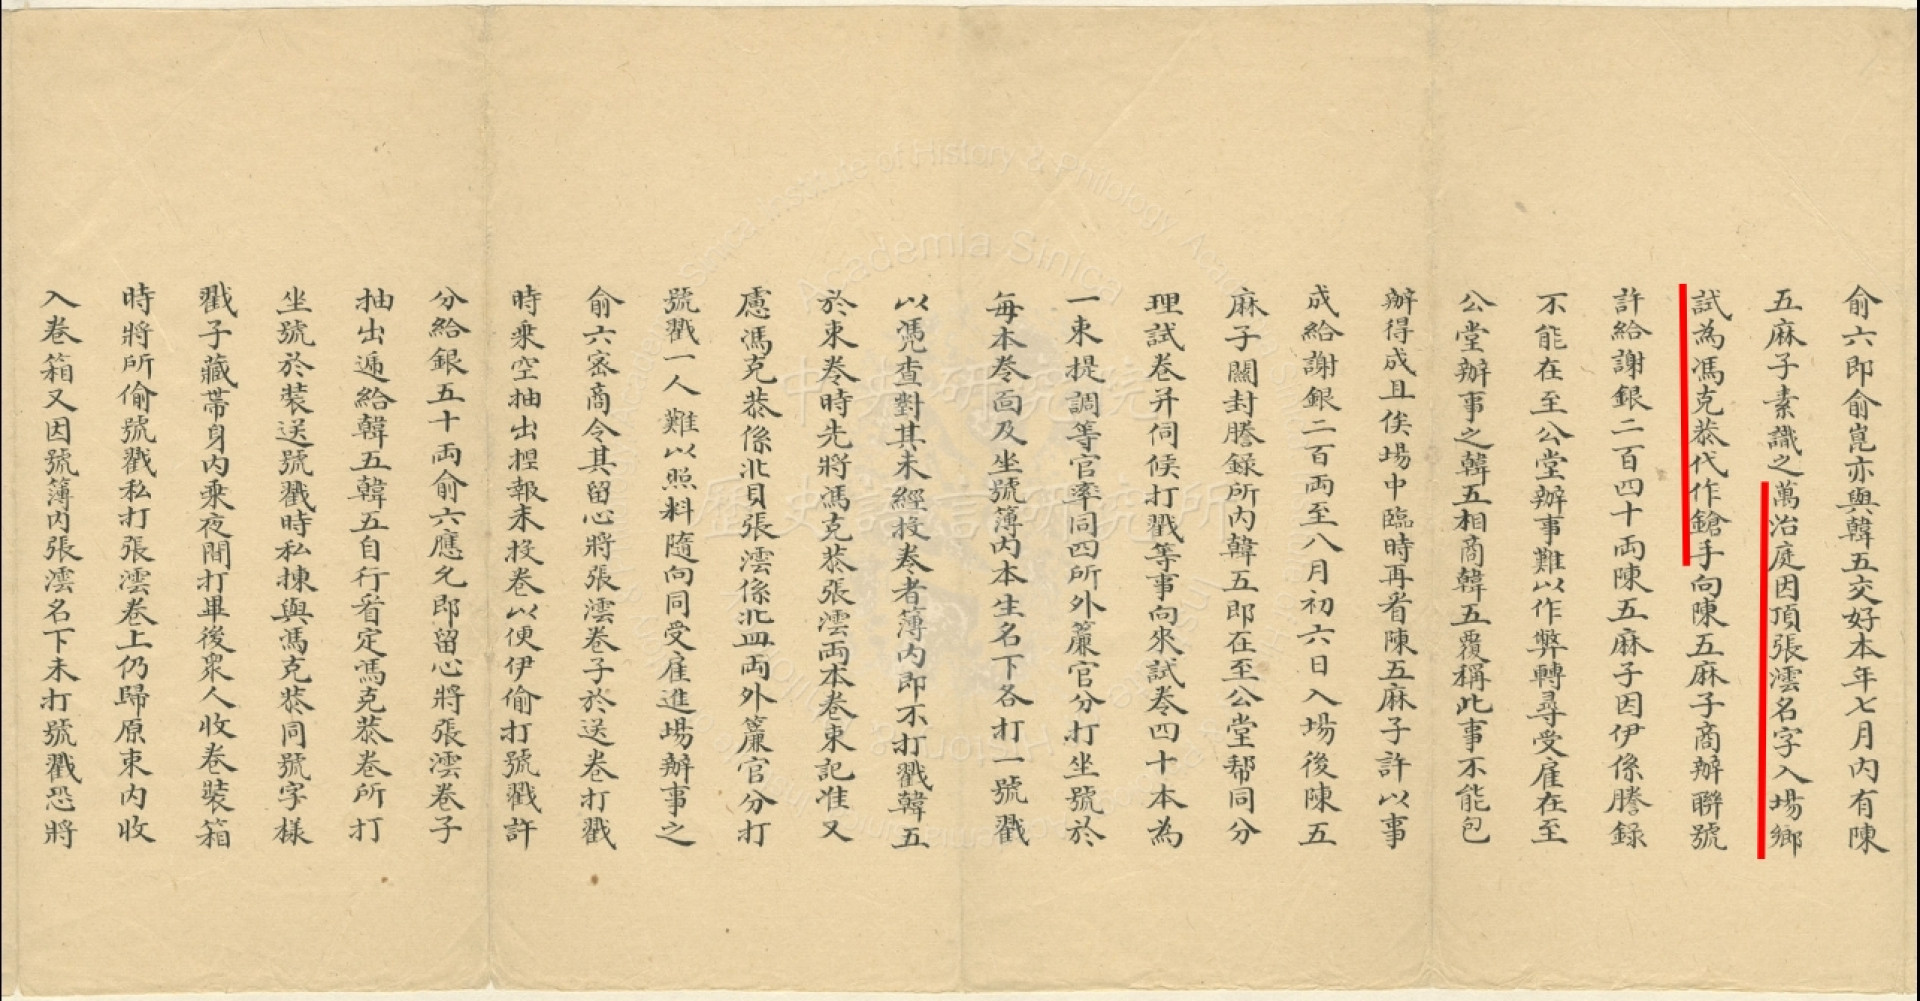 俞六即俞崑亦與韓五交好本年七月內有陳
五麻子素識之萬治庭因頂張澐名字入場鄉
試為馮克恭代作鎗手向陳五麻子商辦聯號
許給謝銀二百四十兩陳五麻子因伊係謄錄
不能在至公堂辦事難以作弊轉尋受雇在至
公堂辦事之韓五相商韓五覆稱此事不能包
辦得成且俟場中臨時再看陳五麻子許以事
成給謝銀二百兩至八月初六日入場後陳五
麻子關封謄錄所內韓五即在至公堂幫同分
理試卷并伺候打戳等事向來試卷四十本為
一束提調等官率同四所外簾官分打坐號於
每本卷面及坐號簿內本生名下各打一號戳
以憑查對其未經投卷者簿內即不打戳韓五
於束卷時先將馮克恭張澐兩本卷束記准又
慮馮克恭係北貝張澐係北皿兩外簾官分打
號戳一人難以照料隨向同受雇進場辦事之
俞六密商令其留心將張澐卷子於送卷打戳
時乘空抽出捏報未投卷以便伊偷打號戳許
分給銀五十兩俞六應允即留心將張澐卷子
抽出遞給韓五韓五自行看定馮克恭卷所打
坐號於裝送號戳時私揀與馮克恭同號字樣
戳子藏帶身內乘夜間打畢後眾人收卷裝箱
時將所偷號戳私打張澐卷上仍歸原束內收
入卷箱又因號簿內張澐名下未打號戳恐將
中央研究院
歷史語言研究所
Academia Sinica
Institute of History & Philology, Academia Sinica